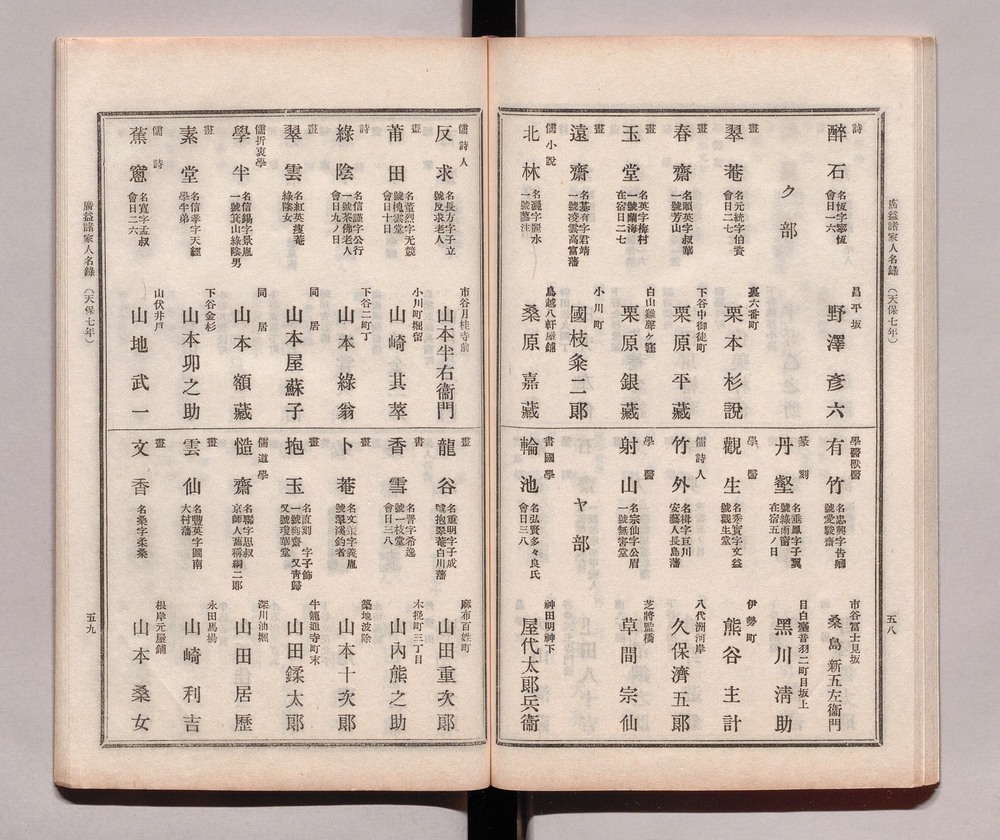 廣益諸家人名錄（天保七年）
五八
詩
醉石
名恆字寧恆
會日一六
昌平坂
野澤彥六
ク部
畫
翠菴
名元統字伯資
會日二七
裏六番町
栗本杉說
畫
春齋
名順英字叔華
一號芳山
下谷中御徒町
栗原平藏
畫
玉堂
名英字梅村
一號蘭海
在宿日二七
白山雞聲ヶ窪
栗原銀藏
畫
遠齋
名基有字君靖
一號凌雲高富藩
小川町
國枝粂二郞
儒小說
北林
鳥越八軒屋鋪
桑原嘉藏
學醫獸醫
有竹
號愛駿齋
市谷富士見坂
桑島新五左衞門
篆刻
丹壑
名垂鳳字子翼
號綠雨窗
在宿五ノ日
目白臺音羽二町目坂上
黑川淸助
學醫
觀生
名秀實字文益
號觀生堂
伊勢町
熊谷主計
儒詩人
竹外
名楫字巨川
安藝人長島藩
八代洲河岸
久保濟五郞
學醫
射山
名宗仙字公眉
一號無害堂
芝將監橋
草間宗仙
ヤ部
書國學
輪池
名弘賢多々良氏
會日三八
神田明神下
屋代太郞兵衞
儒詩人
反求
名長方字子立
號反求老人
市谷月桂寺前
山本半右衞門
畫
莆田
名董烈字无競
號槐雲堂
會日十日
小川町堀留
山崎其萃
詩
綠陰
名信謹字公行
一號茶佛老人
會日九ノ日
下谷二町丁
山本綠翁
畫
翠雲
名紅英瘦菴
綠陰女
同居
山本屋蘇子
儒折衷學
學半
名信錫字景胤
一號箕山綠陰男
同居
山本額藏
畫
素堂
名信孝字天經
學半弟
下谷金杉
山本卯之助
儒詩
蕉窻
名寬字孟叔
會日二六
山伏井戶
山地武一
畫
龍谷
名重明字子成
號抱翠菴白川藩
麻布百姓町
山田重次郞
書
香雪
名晉字希逸
號一枝堂
會日三八
木挽町三丁目
山內熊之助
畫
卜菴
名文策字義胤
號翠溪釣者
築地波除
山本十次郞
畫
抱玉
名直剡字子節
一號梅齋又靑歸
又號瓊華堂
牛籠通寺町末
山田鍒太郞
儒道學
慥齋
名聯字思叔
京師人舊稱綱二郞
深川油堀
山田居歷
畫
雲仙
名豐英字圖南
大村藩
永田馬塲
山崎利吉
畫
文香
名桑字柔桑
根岸元屋鋪
山本桑女
廣益諸家人名錄（天保七年）
五九